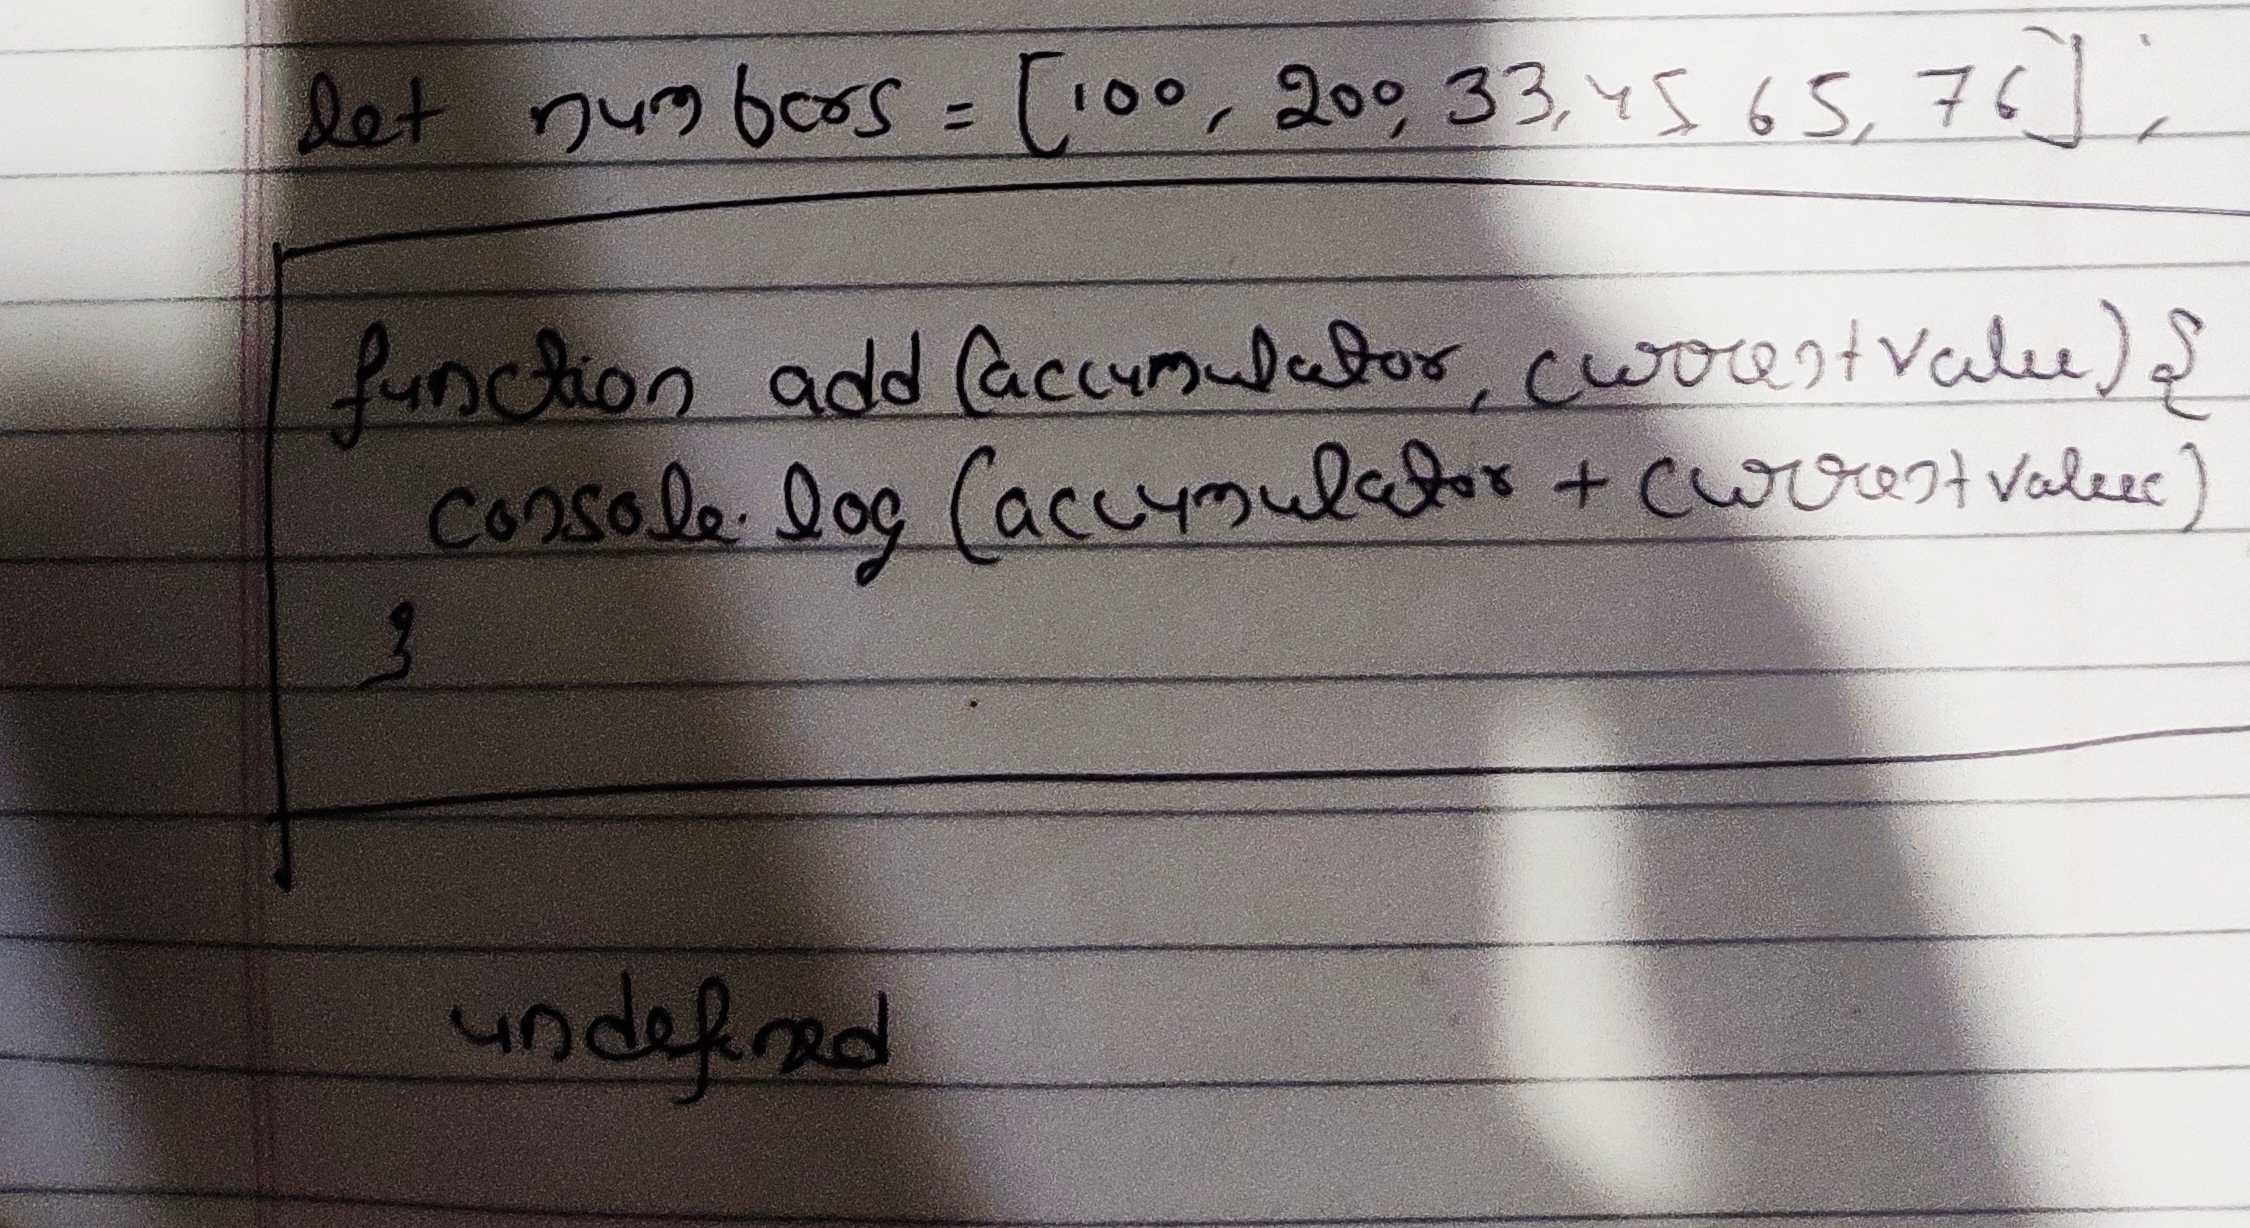 let numbers = [100, 200, 33, 45 65, 76];
function add (accumulator, currentvalue) {
console.log (accumulator + currentvalue)
}
undefined